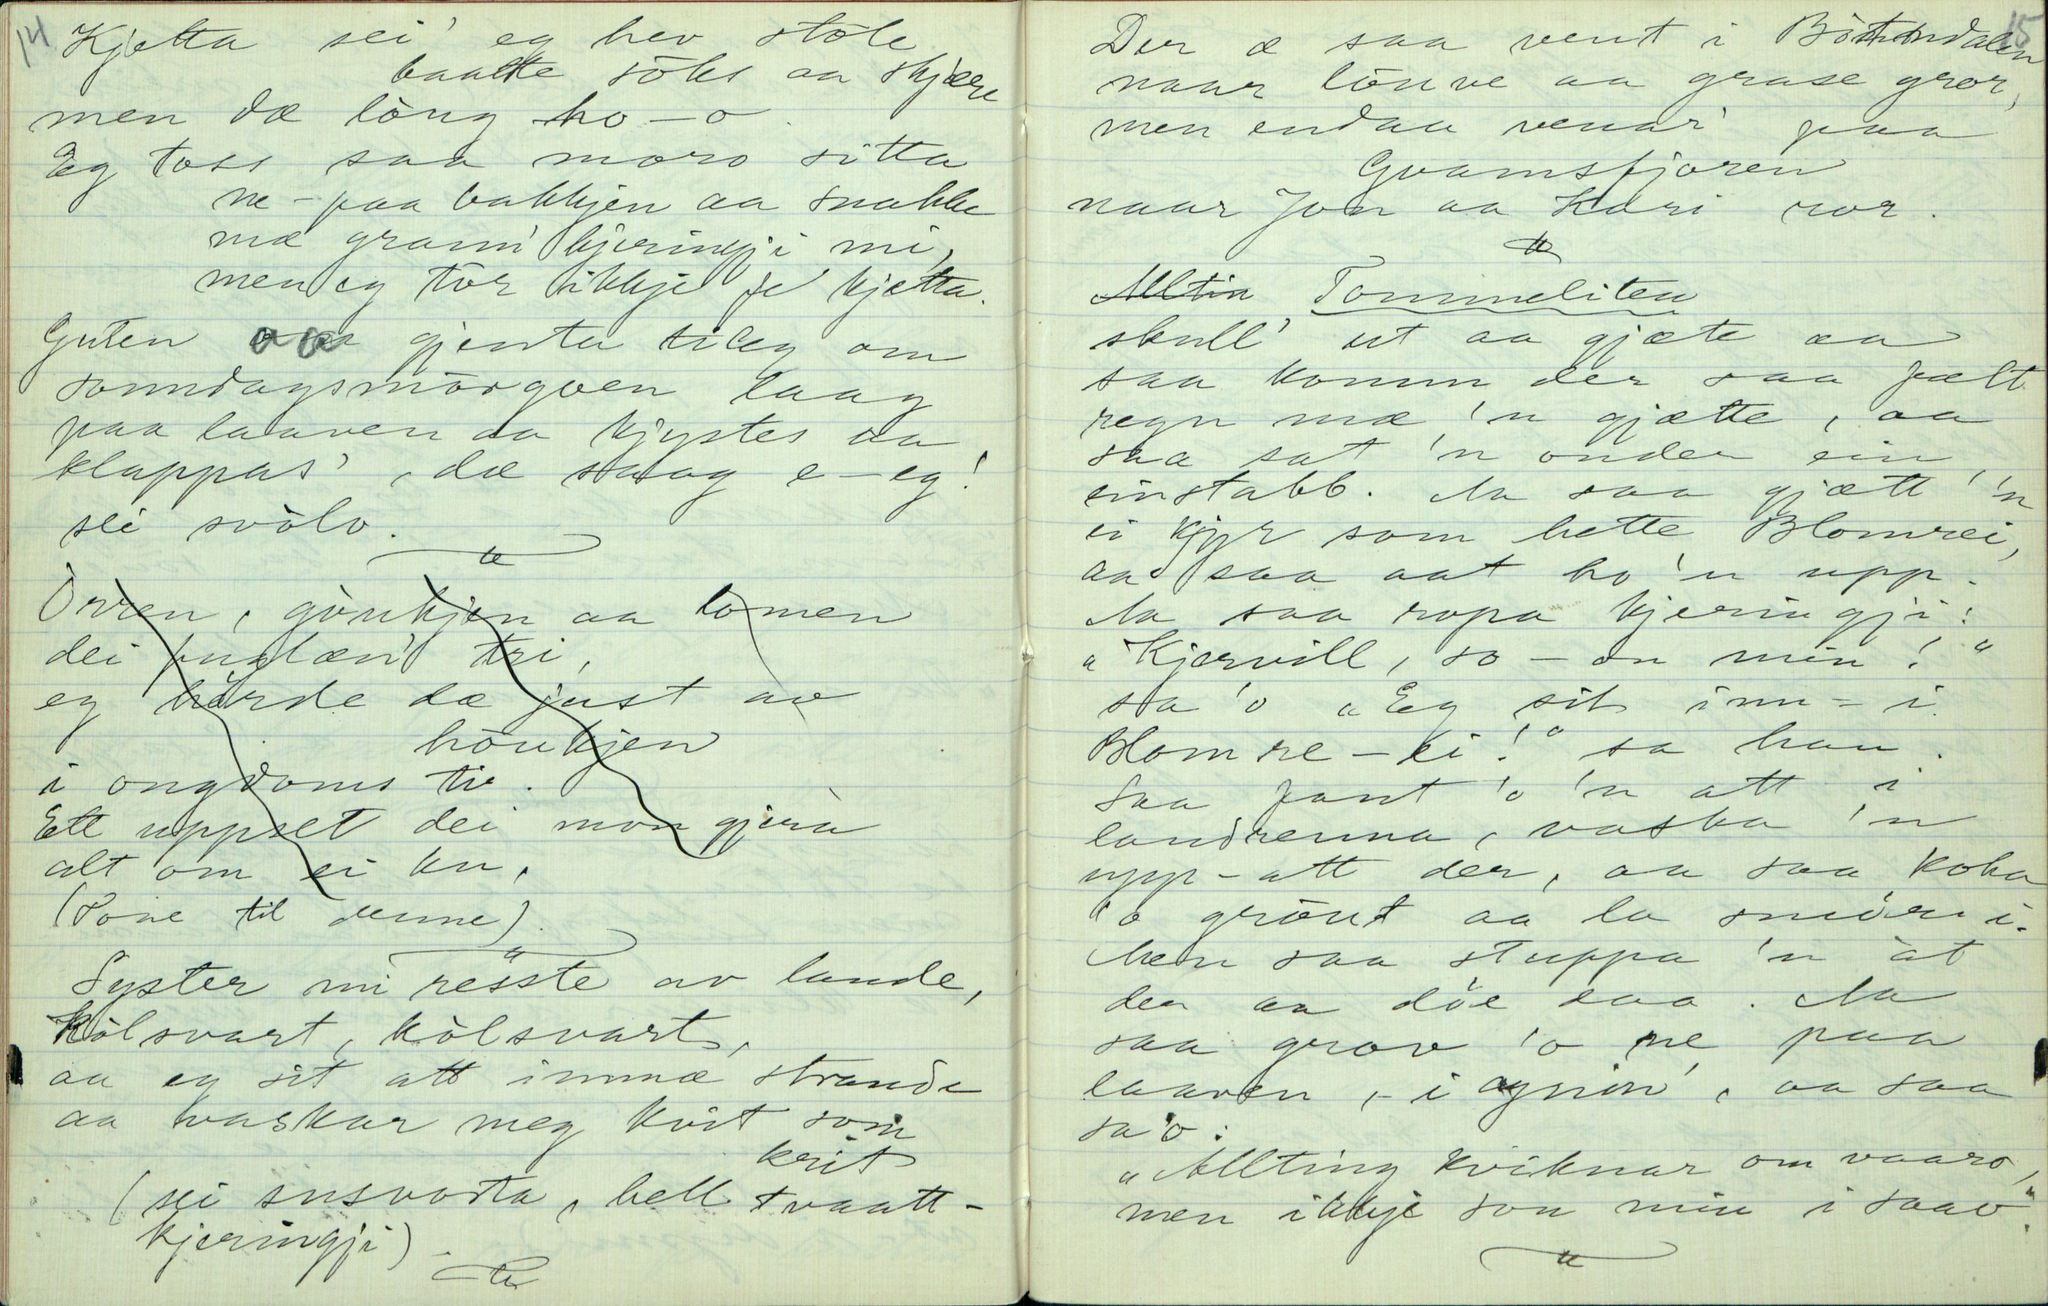 14
Kjetta sei' eg hev stöle
baatte söks aa skjære
men dæ löug ho-o.
Eg toss saa moro sitta
ne-paa bakkjen aa snakke
mæ grann'kjeringji mi,
men eg tör ikkje fe' kjetta.
Guten aa gjenta tileg om
sonndagsmörgoen laag
paa laaven aa kjystes aa
klappas', dæ saag e-eg!
sei svölo.
Orren, göukjen aa lomen
dei fuglæn' tri,
eg hörde dæ just av
höukjen
i ongdoms ti.
Ett uppset dei mon gjera
alt om ei ku.
(Tone til denne)
Syster miresste av lande,
kölsvart, kölsvart,
aa eg sit att immæ strande
aa vaskar meg kvit som
krit
(sei susvorta, hell tvaatt-
kjeringji).
15
Der æ saa vent i Böhmdalen
naar lönve aa grase gror,
men endaa venar' paa
Gvamsfjoren
naar Jon aa Kari ror.
Alltin Tommeliten
skull' ut aa gjæte aa
saa komm der saa fælt
regn mæ 'n gjætte, aa
saa sat 'n onder ein
einstabb. Aa saa gjætt' 'n
ei kjyr som hette Blomrei,
aa saa aat ho 'n upp.
Aa saa ropa kjeringji:
"Kjervill, so-on min!"
sa 'o "Eg sit inn-i
Blomre-ei!" sa han.
Saa fant 'o 'n att i
landrenna, vaska 'n
upp-att der, aa saa koka
'o gröut aa la smör i.
Men saa stuppa 'n åt
den aa döe daa. Aa
saa grov 'o ne paa
laaven, - i agnin', aa saa
sa'o:
"Allting kviknar om vaaro,
men ikkje son min i saao".